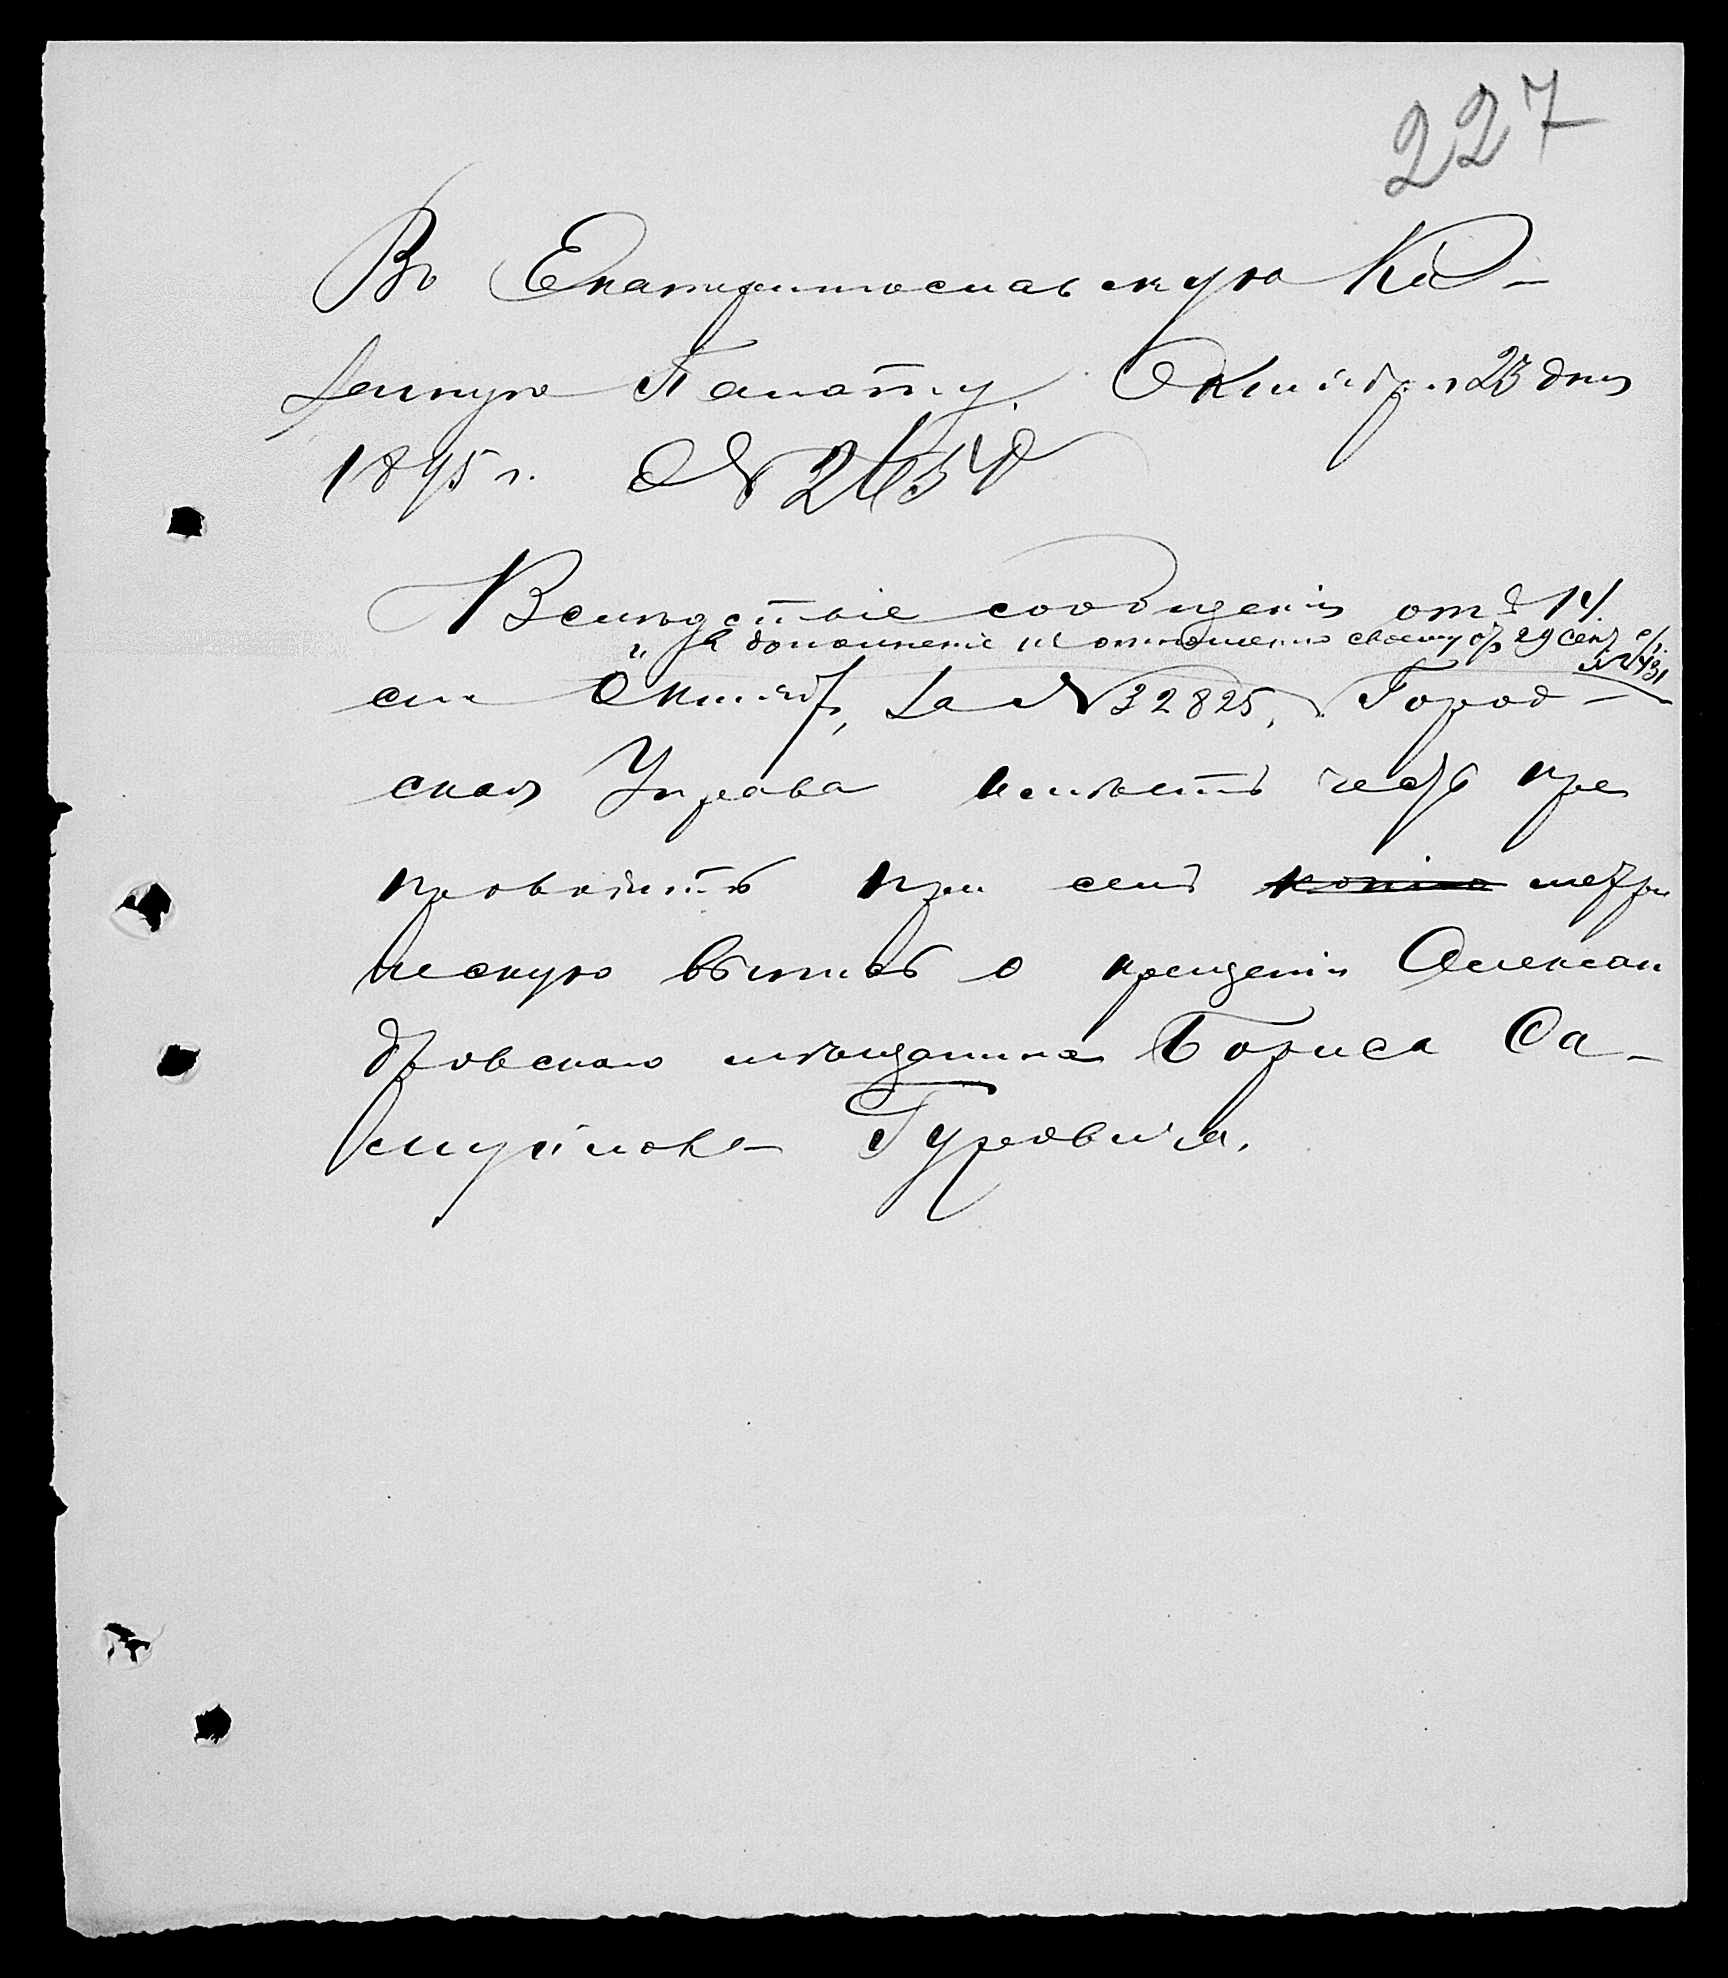 227
Въ Екатеринославскую Ка-
зенную Палату. Октября 23 дня
1895 г. № 2654
Вслѣдствіе сообщенія отъ 14
и въ дополненіе къ отношенію своему отъ 29 Сент с/г.
№ 2431
сего Октяб, за № 32825, Город-
ская Управа имѣетъ честь пре
проводить при семъ копію метри
ческую выпись о крещеніи Алексан
дровскаго мѣщанина Бориса Са-
муйлова Гуровича.